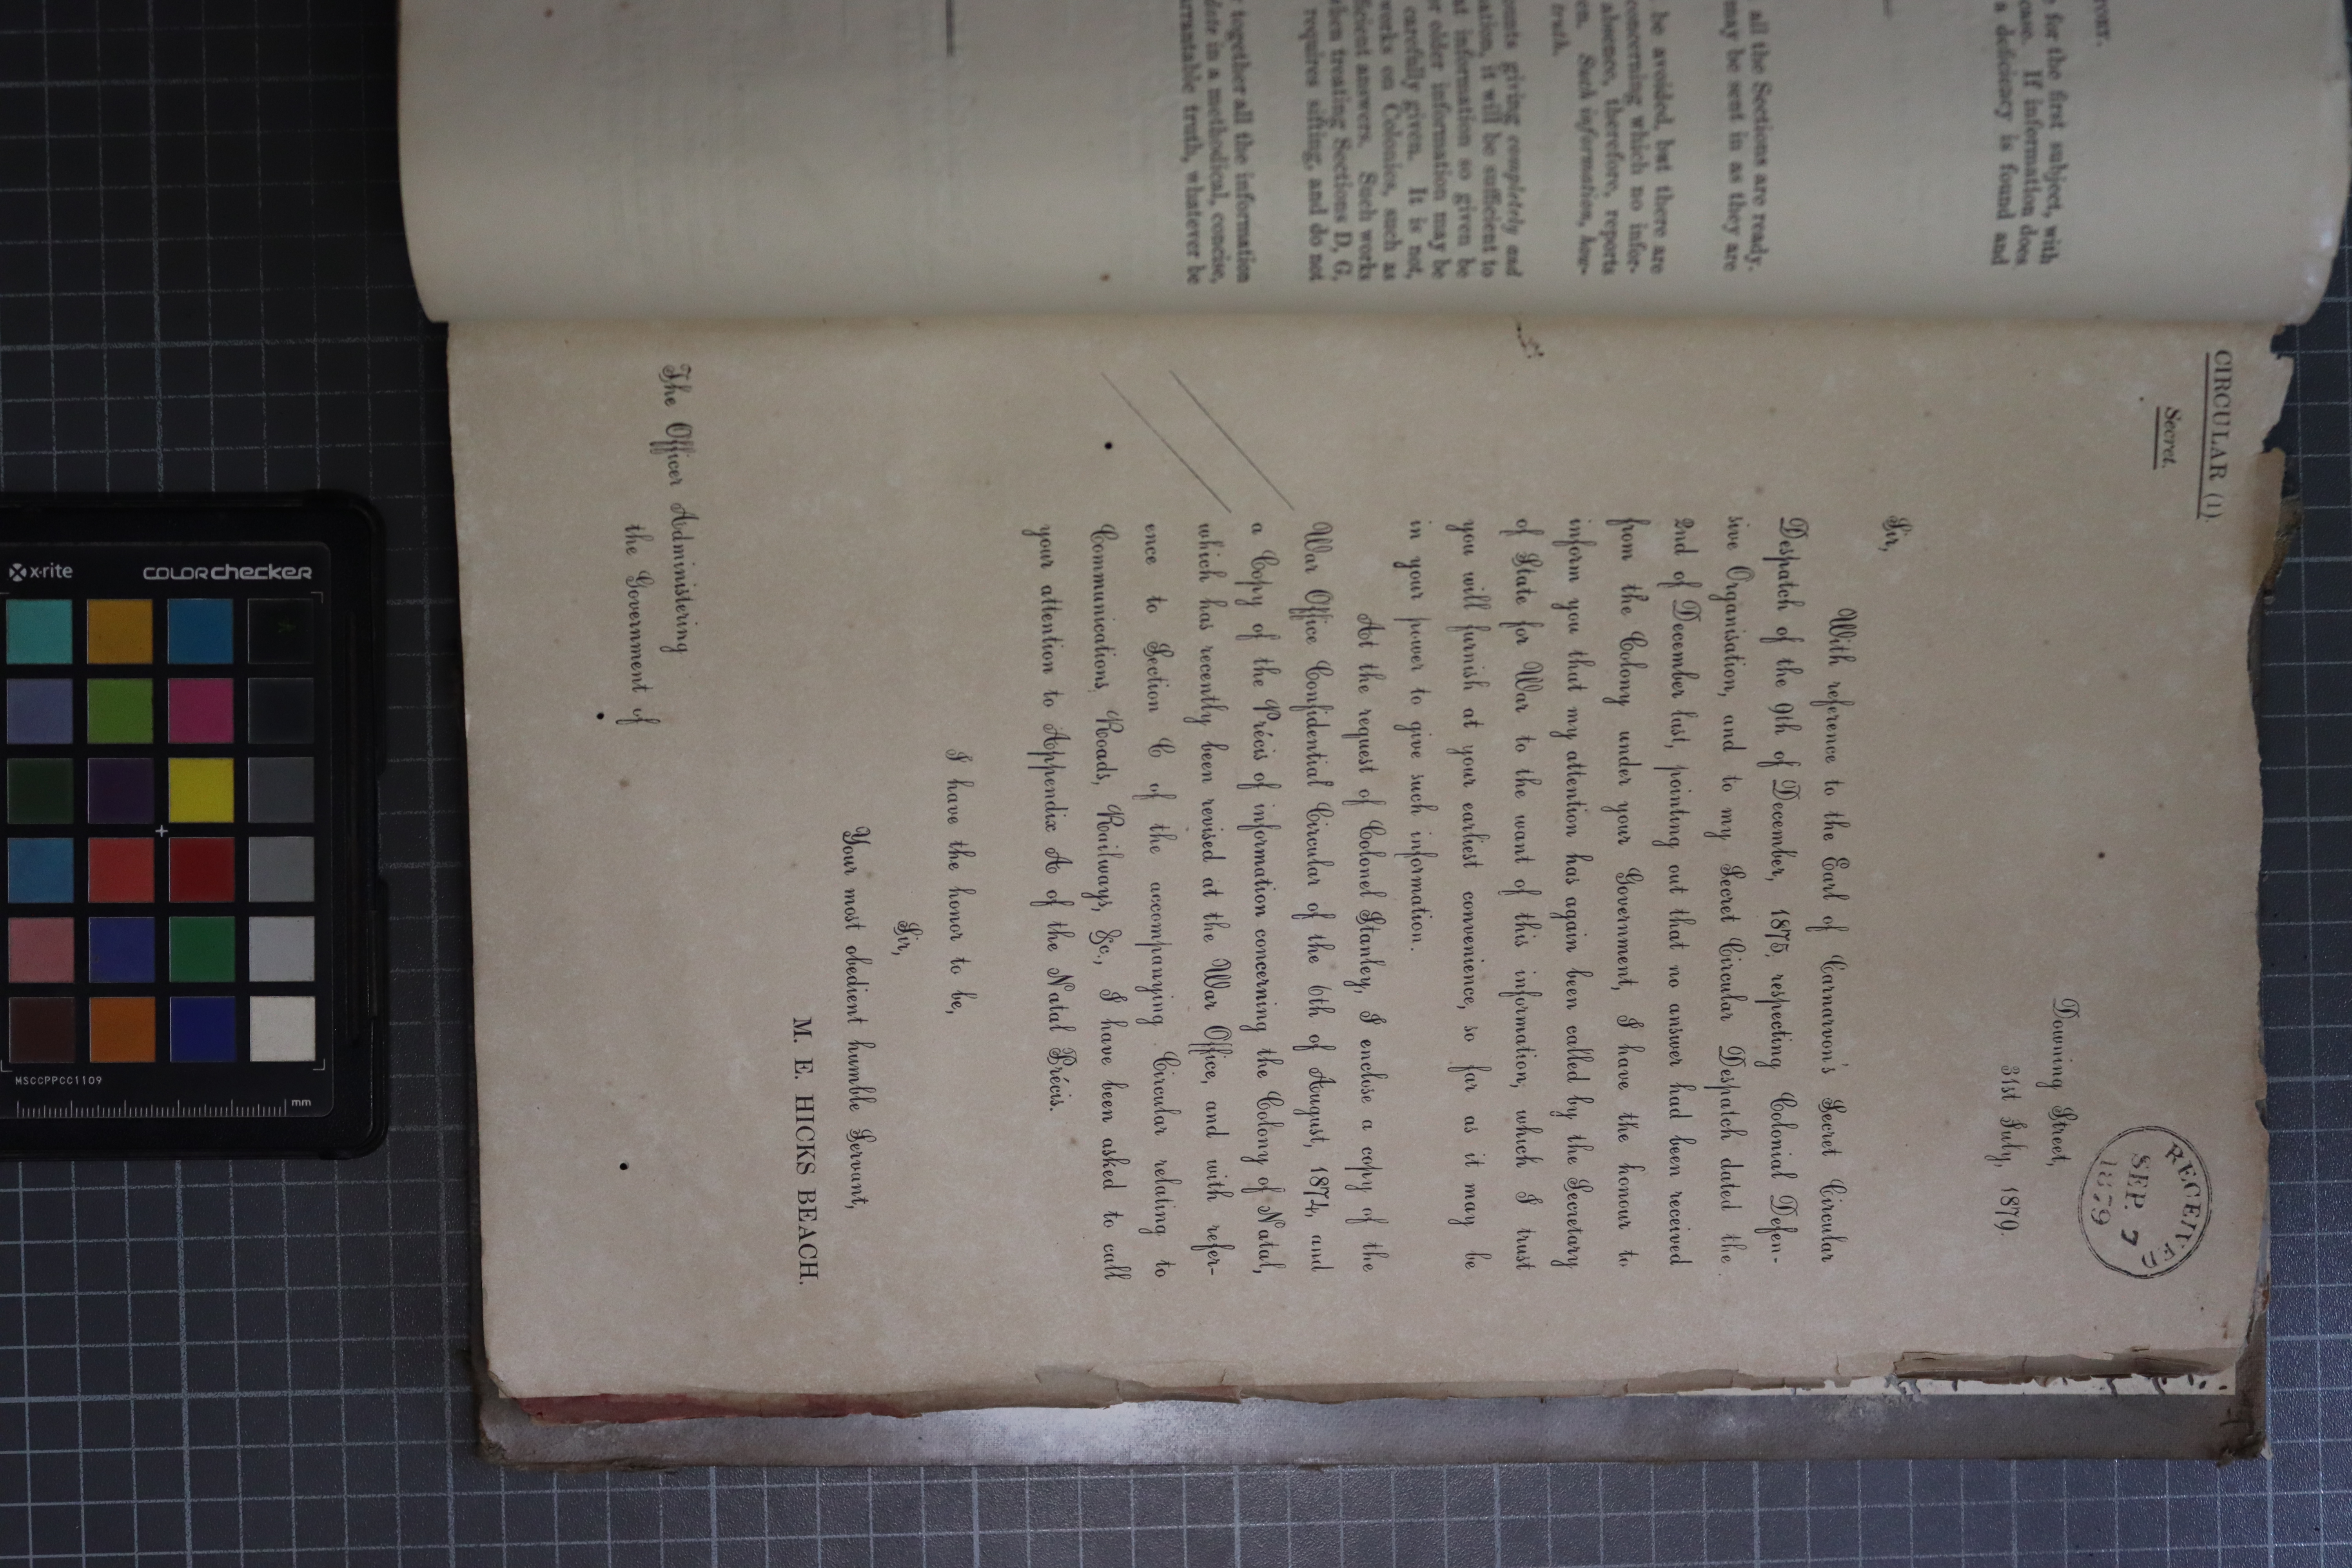 CIRCULAR (1).
Secret.
RECEIVED
SEP. 7
1879
Downing Street,
31st July, 1879.
Sir,
With reference to the Earl of Carnarvon's Secret Circular
Despatch of the 9th of December, 1875, respecting Colonial Defen-
sive Organisation, and to my Secret Circular Despatch dated the
2nd of December last, pointing out that no answer had been received
from the Colony under your Government, I have the honour to
inform you that my attention has again been called by the Secretary
of State for War to the want of this information, which I trust
you will furnish at your earliest convenience, so far as it may be
in your power to give such information.
At the request of Colonel Stanley, I enclose a copy of the
War Office Confidential Circular of the 6th of August, 1874, and
a Copy of the Précis of information concerning the Colony of Natal,
which has recently been revised at the War Office, and with refer-
ence to Section C of the accompanying Circular relating to
Communications, Roads, Railways, &c., I have been asked to call
your attention to Appendix A of the Natal Précis.
I have the honor to be,
Sir,
Your most obedient humble Servant,
M. E. HICKS BEACH.
The Officer Administering
the Government of
for the first subject, with
case. If information does
a deficiency is found and
all the Sections are ready.
may be sent in as they are
be avoided, but there are
concerning which no infor-
absence, therefore, reports
Such information, how-
truth.
giving completely and
ation, it will be sufficient to
at information so given be
or older information may be
carefully given. It is not,
works on Colonies, such as
ficient answers. Such works
when treating Sections D, G,
requires sifting, and do not
together all the information
date in a methodical, concise,
arrantable truth, whatever be
x-rite
colorchecker
MSCCPPCC1109
mm